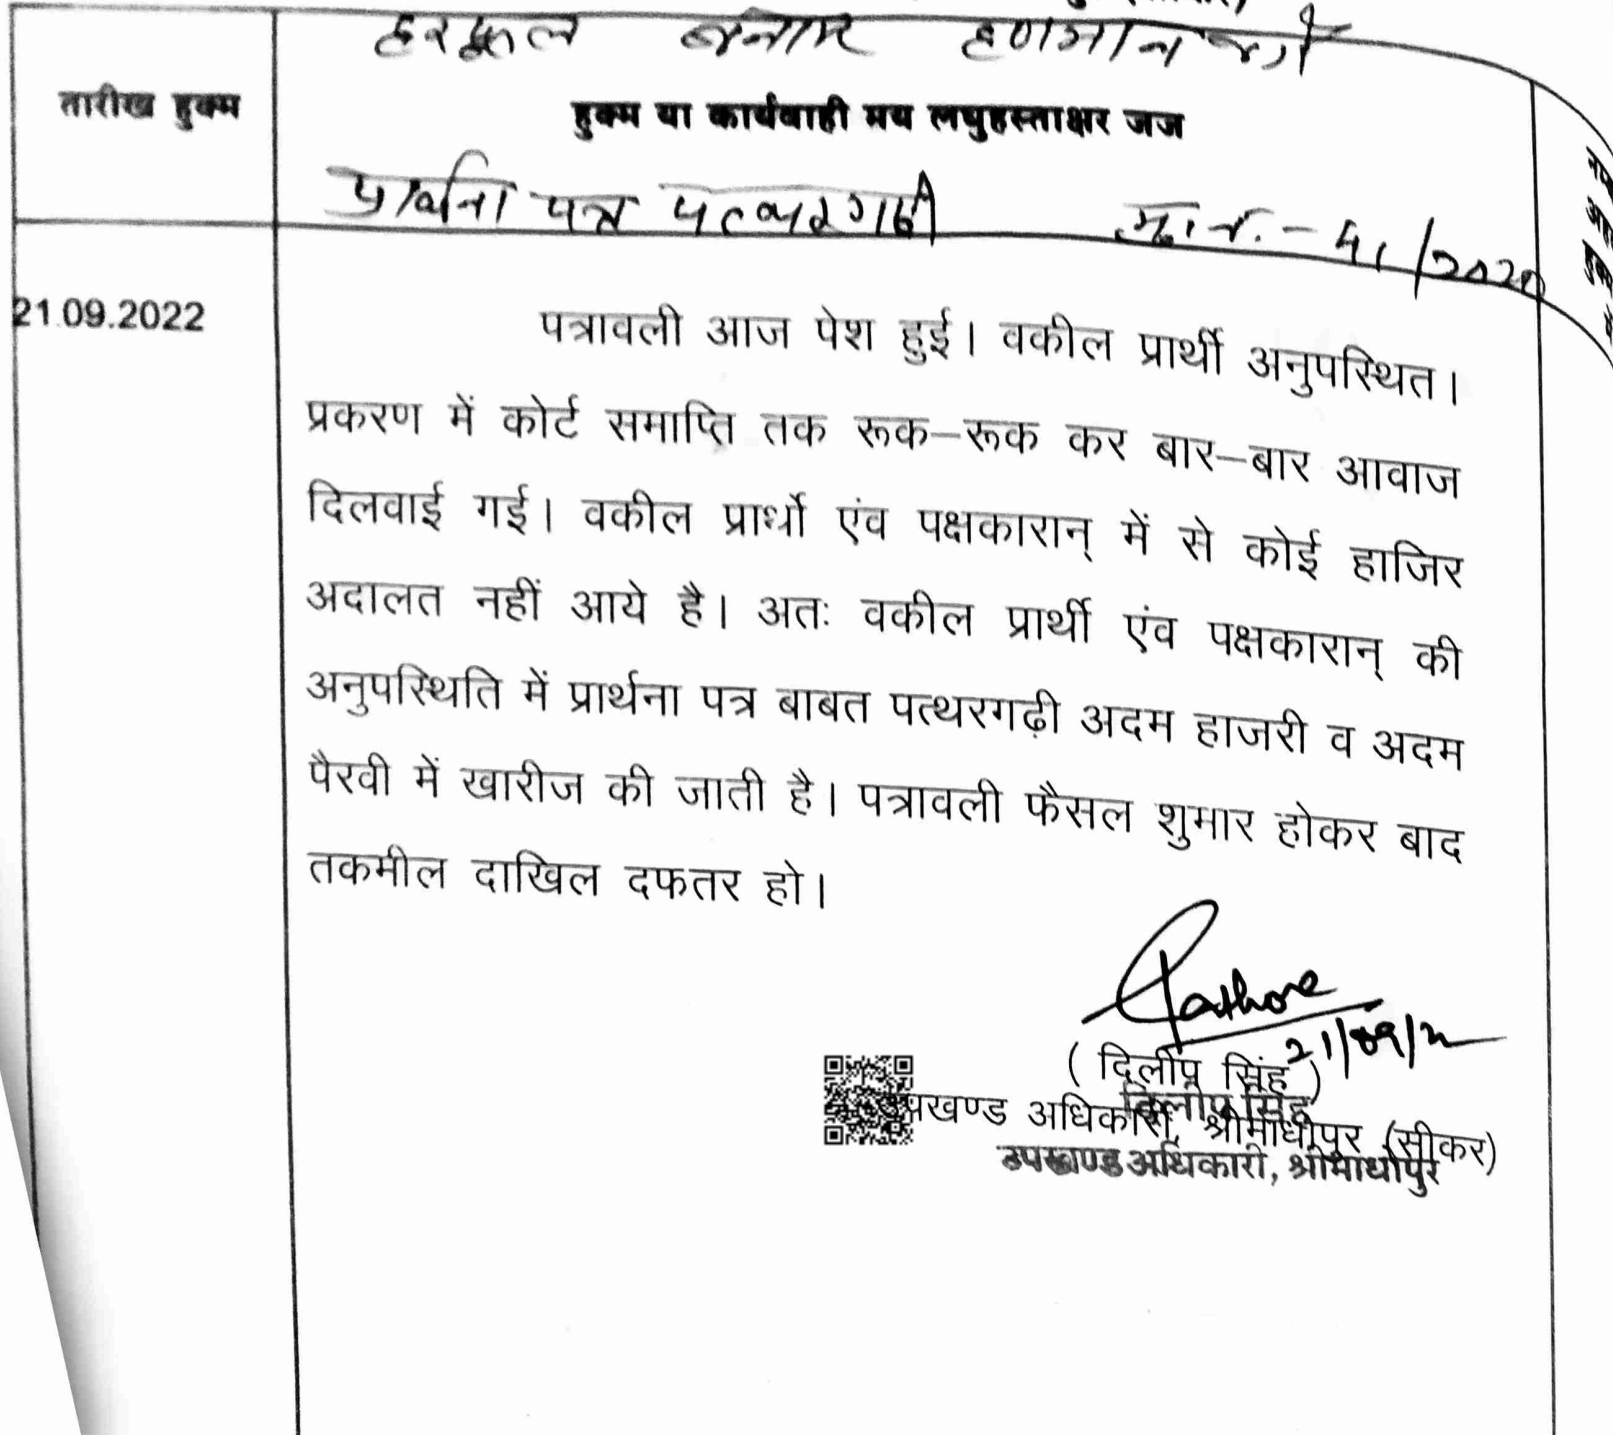 हरफूल बनाम हणमान वगै
तारीख हुक्म
हुक्म या कार्यवाही मय लघुहस्ताक्षर जज
प्रार्थना पत्र पत्थरगढी मु.नं.-51/2020
21.09.2022
पत्रावली आज पेश हुई। वकील प्रार्थी अनुपस्थित।
प्रकरण में कोर्ट समाप्ति तक रूक–रूक कर बार–बार आवाज
दिलवाई गई। वकील प्रार्थी एंव पक्षकारान् में से कोई हाजिर
अदालत नहीं आये है। अतः वकील प्रार्थी एंव पक्षकारान् की
अनुपस्थिति में प्रार्थना पत्र बाबत पत्थरगढ़ी अदम हाजरी व अदम
पैरवी में खारीज की जाती है। पत्रावली फैसल शुमार होकर बाद
तकमील दाखिल दफतर हो।
Rathore
21/09/22
( दिलीप सिंह )
दिलीप सिंह
उपखण्ड अधिकारी, श्रीमाधोपुर (सीकर)
उपखण्ड अधिकारी, श्रीमाधोपुर